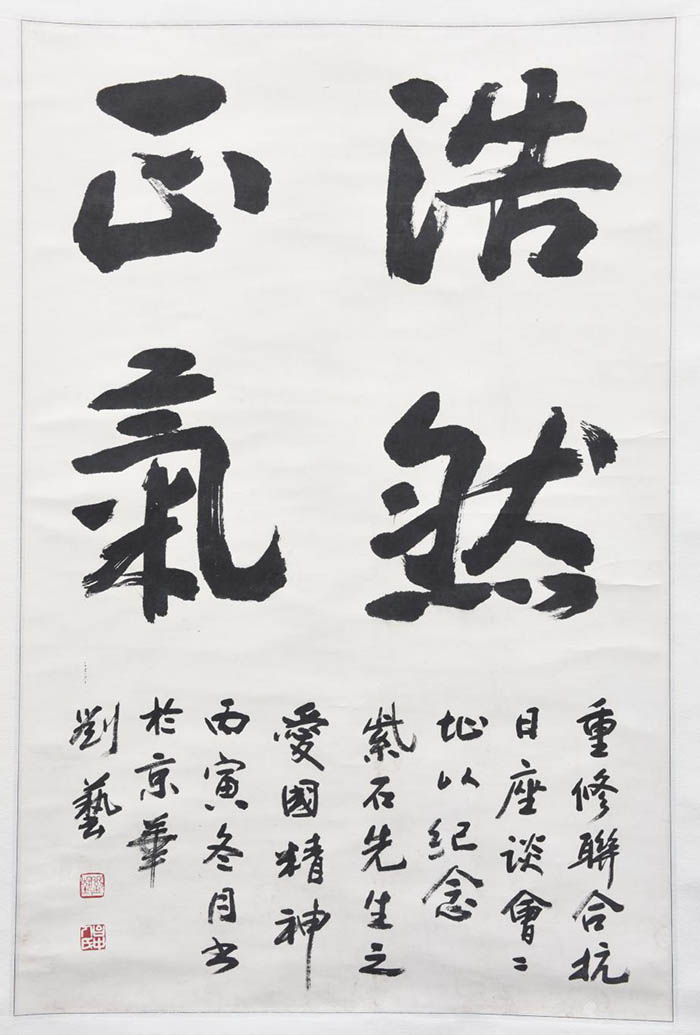 浩然
正氣
重修聯合抗
日座談會〻
址以紀念
紫石先生之
愛國精神
丙寅冬月书
於京華
劉藝